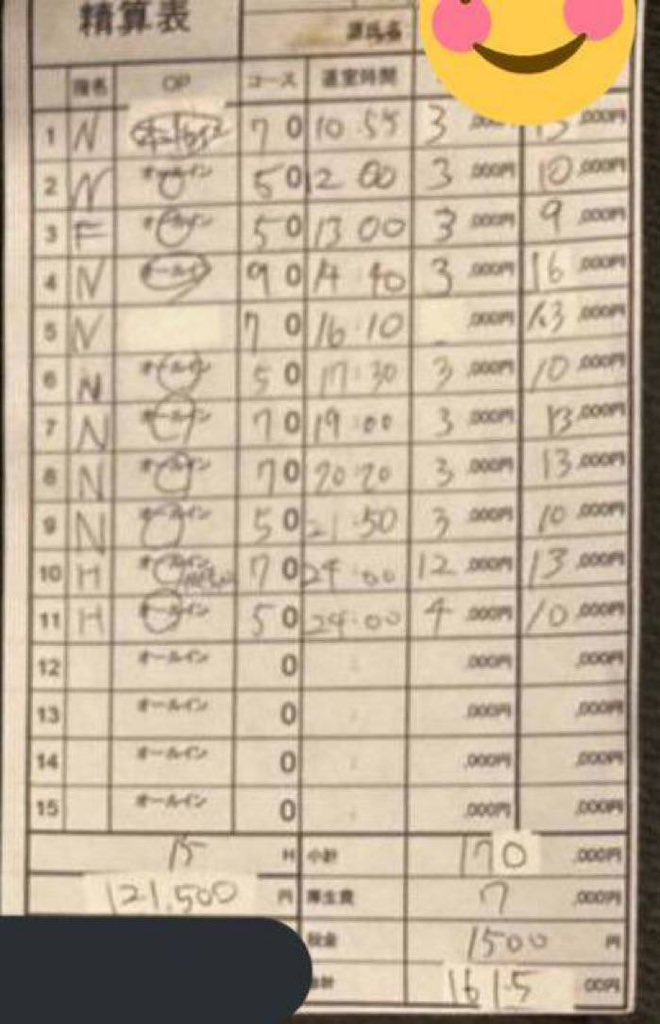 精算表
源氏名
指名 OP コース 退室時間
1 N 70 10:55 3 ,000円 13 ,000円
2 N オールイン 50 12:00 3 ,000円 10 ,000円
3 F オールイン 50 13:00 3 ,000円 9 ,000円
4 N オールイン 90 14:40 3 ,000円 16 ,000円
5 N 70 16:10 ,000円 13 ,000円
6 N オールイン 50 17:30 3 ,000円 10 ,000円
7 N オールイン 70 19:00 3 ,000円 13 ,000円
8 N オールイン 70 20:20 3 ,000円 13 ,000円
9 N オールイン 50 21:50 3 ,000円 10 ,000円
10 H オールイン 70 24:00 12 ,000円 13 ,000円
11 H オールイン 50 24:00 4 ,000円 10 ,000円
12 オールイン 0 : ,000円 ,000円
13 オールイン 0 : ,000円 ,000円
14 オールイン 0 : ,000円 ,000円
15 オールイン 0 : ,000円 ,000円
15 H 小計 170 ,000円
121,500 円 厚生費 7 ,000円
税金 1500 円
合計 161.5 00円